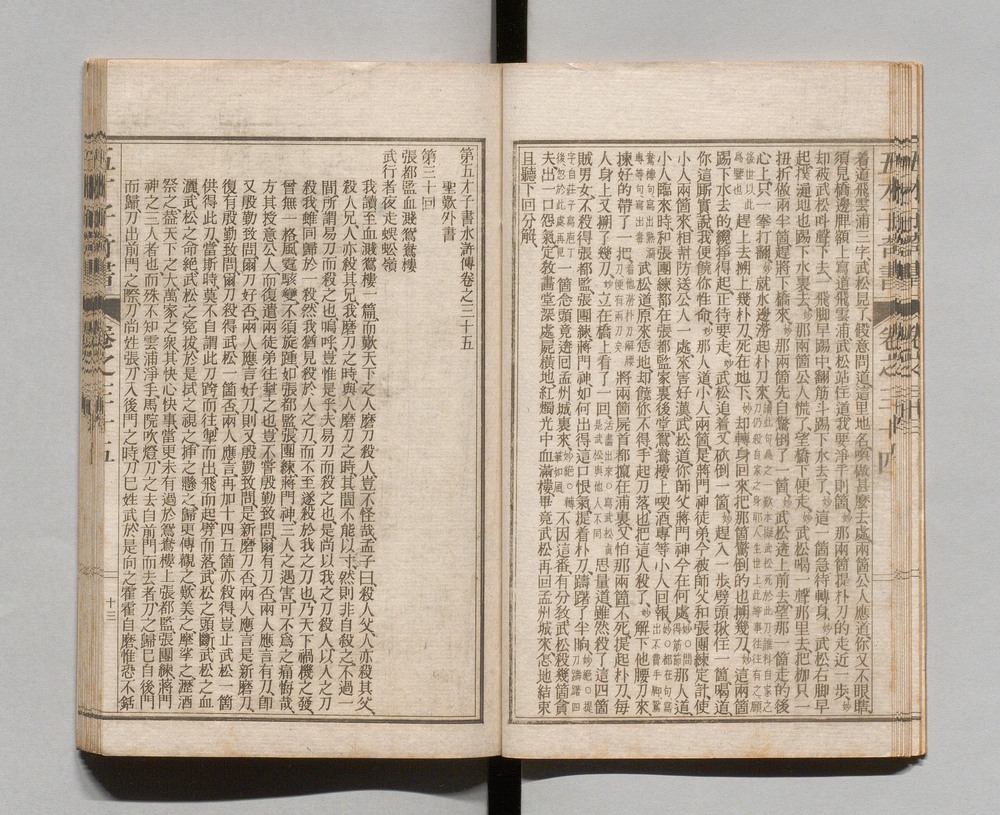 着道飛雲浦三字武松見了假意問道這里地名喚做甚麽去處兩個公人應道你又不眼瞎
須見橋邊牌額上寫道飛雲浦武松站住道我要淨手則箇那兩箇提朴刀的走近一步妙
却被武松叫聲下去一飛脚早踢中翻筋斗踢下水去了妙這一箇急待轉身妙武松右脚早
起撲通地也踢下水裏去妙那兩箇公人慌了望橋下便走妙武松喝一聲那里去把枷只一
扭折做兩半箇趕將下橋來妙那兩箇先自驚倒了一箇妙武松逩上前去望那一箇走的後
心上只一拳打翻妙就水邊撈起朴刀來
趕上去搠上幾朴刀死在地下妙却轉身回來把那箇驚倒的也搠幾刀妙這兩箇
踢下水去的纔掙得起正待要走妙武松追着又砍倒一箇妙趕入一步劈頭揪住一箇喝道
你這厮實說我便饒你性命妙那人道小人兩箇是蔣門神徒弟今被師父和張團練定計使
小人兩箇來相幫防送公人一處來害好漢武松道你師父蔣門神今在何處那人道
小人臨來時和張團練都在張都監家裏後堂鴛鴦樓上喫酒專等小人回報
武松道原來恁地却饒你不得手起刀落也把這人殺了妙解下他腰刀來
揀好的帶了一把將兩箇屍首都攛在浦裏又怕那兩箇不死提起朴刀每
人身上又搠了幾刀妙立在橋上看了一回思量道雖然殺了這四箇
賊男女不殺得張都監張團練蔣門神如何出得這口恨氣提着朴刀躊躇了半晌
一箇念頭竟逩回孟州城裏來不因這番有分敎武松殺幾箇貪
夫出一口怨氣定敎畫堂深處屍橫地紅燭光中血滿樓畢竟武松再回孟州城來怎地結束
且聽下回分解
第五才子書水滸傳卷之三十五
聖歎外書
第三十回
張都監血濺鴛鴦樓
武行者夜走蜈蚣嶺
我讀至血濺鴛鴦樓一篇而歎天下之人磨刀殺人豈不怪哉孟子曰殺人父人亦殺其父
殺人兄人亦殺其兄我磨刀之時與人磨刀之時其間不能以寸然則非自殺之不過一
間所謂易刀而殺之也嗚呼豈惟是乎夫易刀而殺之也是尚以我之刀殺人以人之刀
殺我雖同歸於一殺然我猶見殺於人之刀而不至遂殺於我之刀也乃天下禍機之發
曾無一格風霆駭變不須旋踵如張都監張團練蔣門神三人之遇害可不爲之痛悔哉
方其授意公人而復遣兩徒弟往幫之也豈不嘗殷勤致問爾有刀否兩人應言有刀即
又殷勤致問爾刀好否兩人應言好刀則又殷勤致問是新磨刀否兩人應言是新磨刀
復有殷勤致問爾刀殺得武松一箇否兩人應言再加十四五箇亦殺得豈止武松一箇
供得此刀當斯時莫不自謂此刀跨而往掣而出飛而起劈而落武松之頭斷武松之血
灑武松之命絕武松之冤拔於是拭之視之插之懸之歸更傳觀之歎美之摩挲之瀝酒
祭之蓋天下之大萬家之衆其快心快事當更未有過於鴛鴦樓上張都監張團練蔣門
神之三人者也而殊不知雲浦淨手馬院吹燈刀之去自前門而去者刀之歸已自後門
而歸刀出前門之際刀尚姓張刀入後門之時刀巳姓武於是向之霍霍自磨惟恐不銛
十三